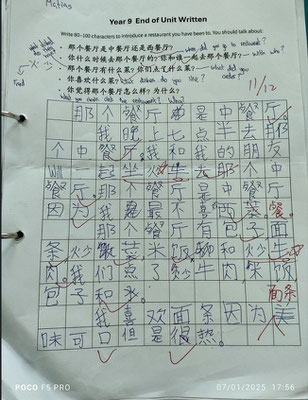 Matias
Year 9 End of Unit Written
Write 80-100 characters to introduce a restaurant you have been to. You should talk about:
那个餐厅是中餐厅还是西餐厅?
你什么时候去那个餐厅的?你和谁一起去那个餐厅?
with who?
那个餐厅有什么菜?你们点了什么菜?
what did you order?
你喜欢什么菜?
你觉得那个餐厅怎么样?为什么?
What you think about the restaurant? Why?
Food
11/12
那个餐厅是中餐厅。
我晚上七点半去那
个中餐厅我和我的朋友
Will 一起
餐厅。那个餐厅是中餐
因为我最不喜西菜。
那个餐厅有包子面
条炒饭菜米饭和火牛
肉。我们点了炒牛肉米饭
面条
包子和水。
我喜欢面条因为美
味可口但是很热。
POCO F5 PRO
07/01/2025 17:56